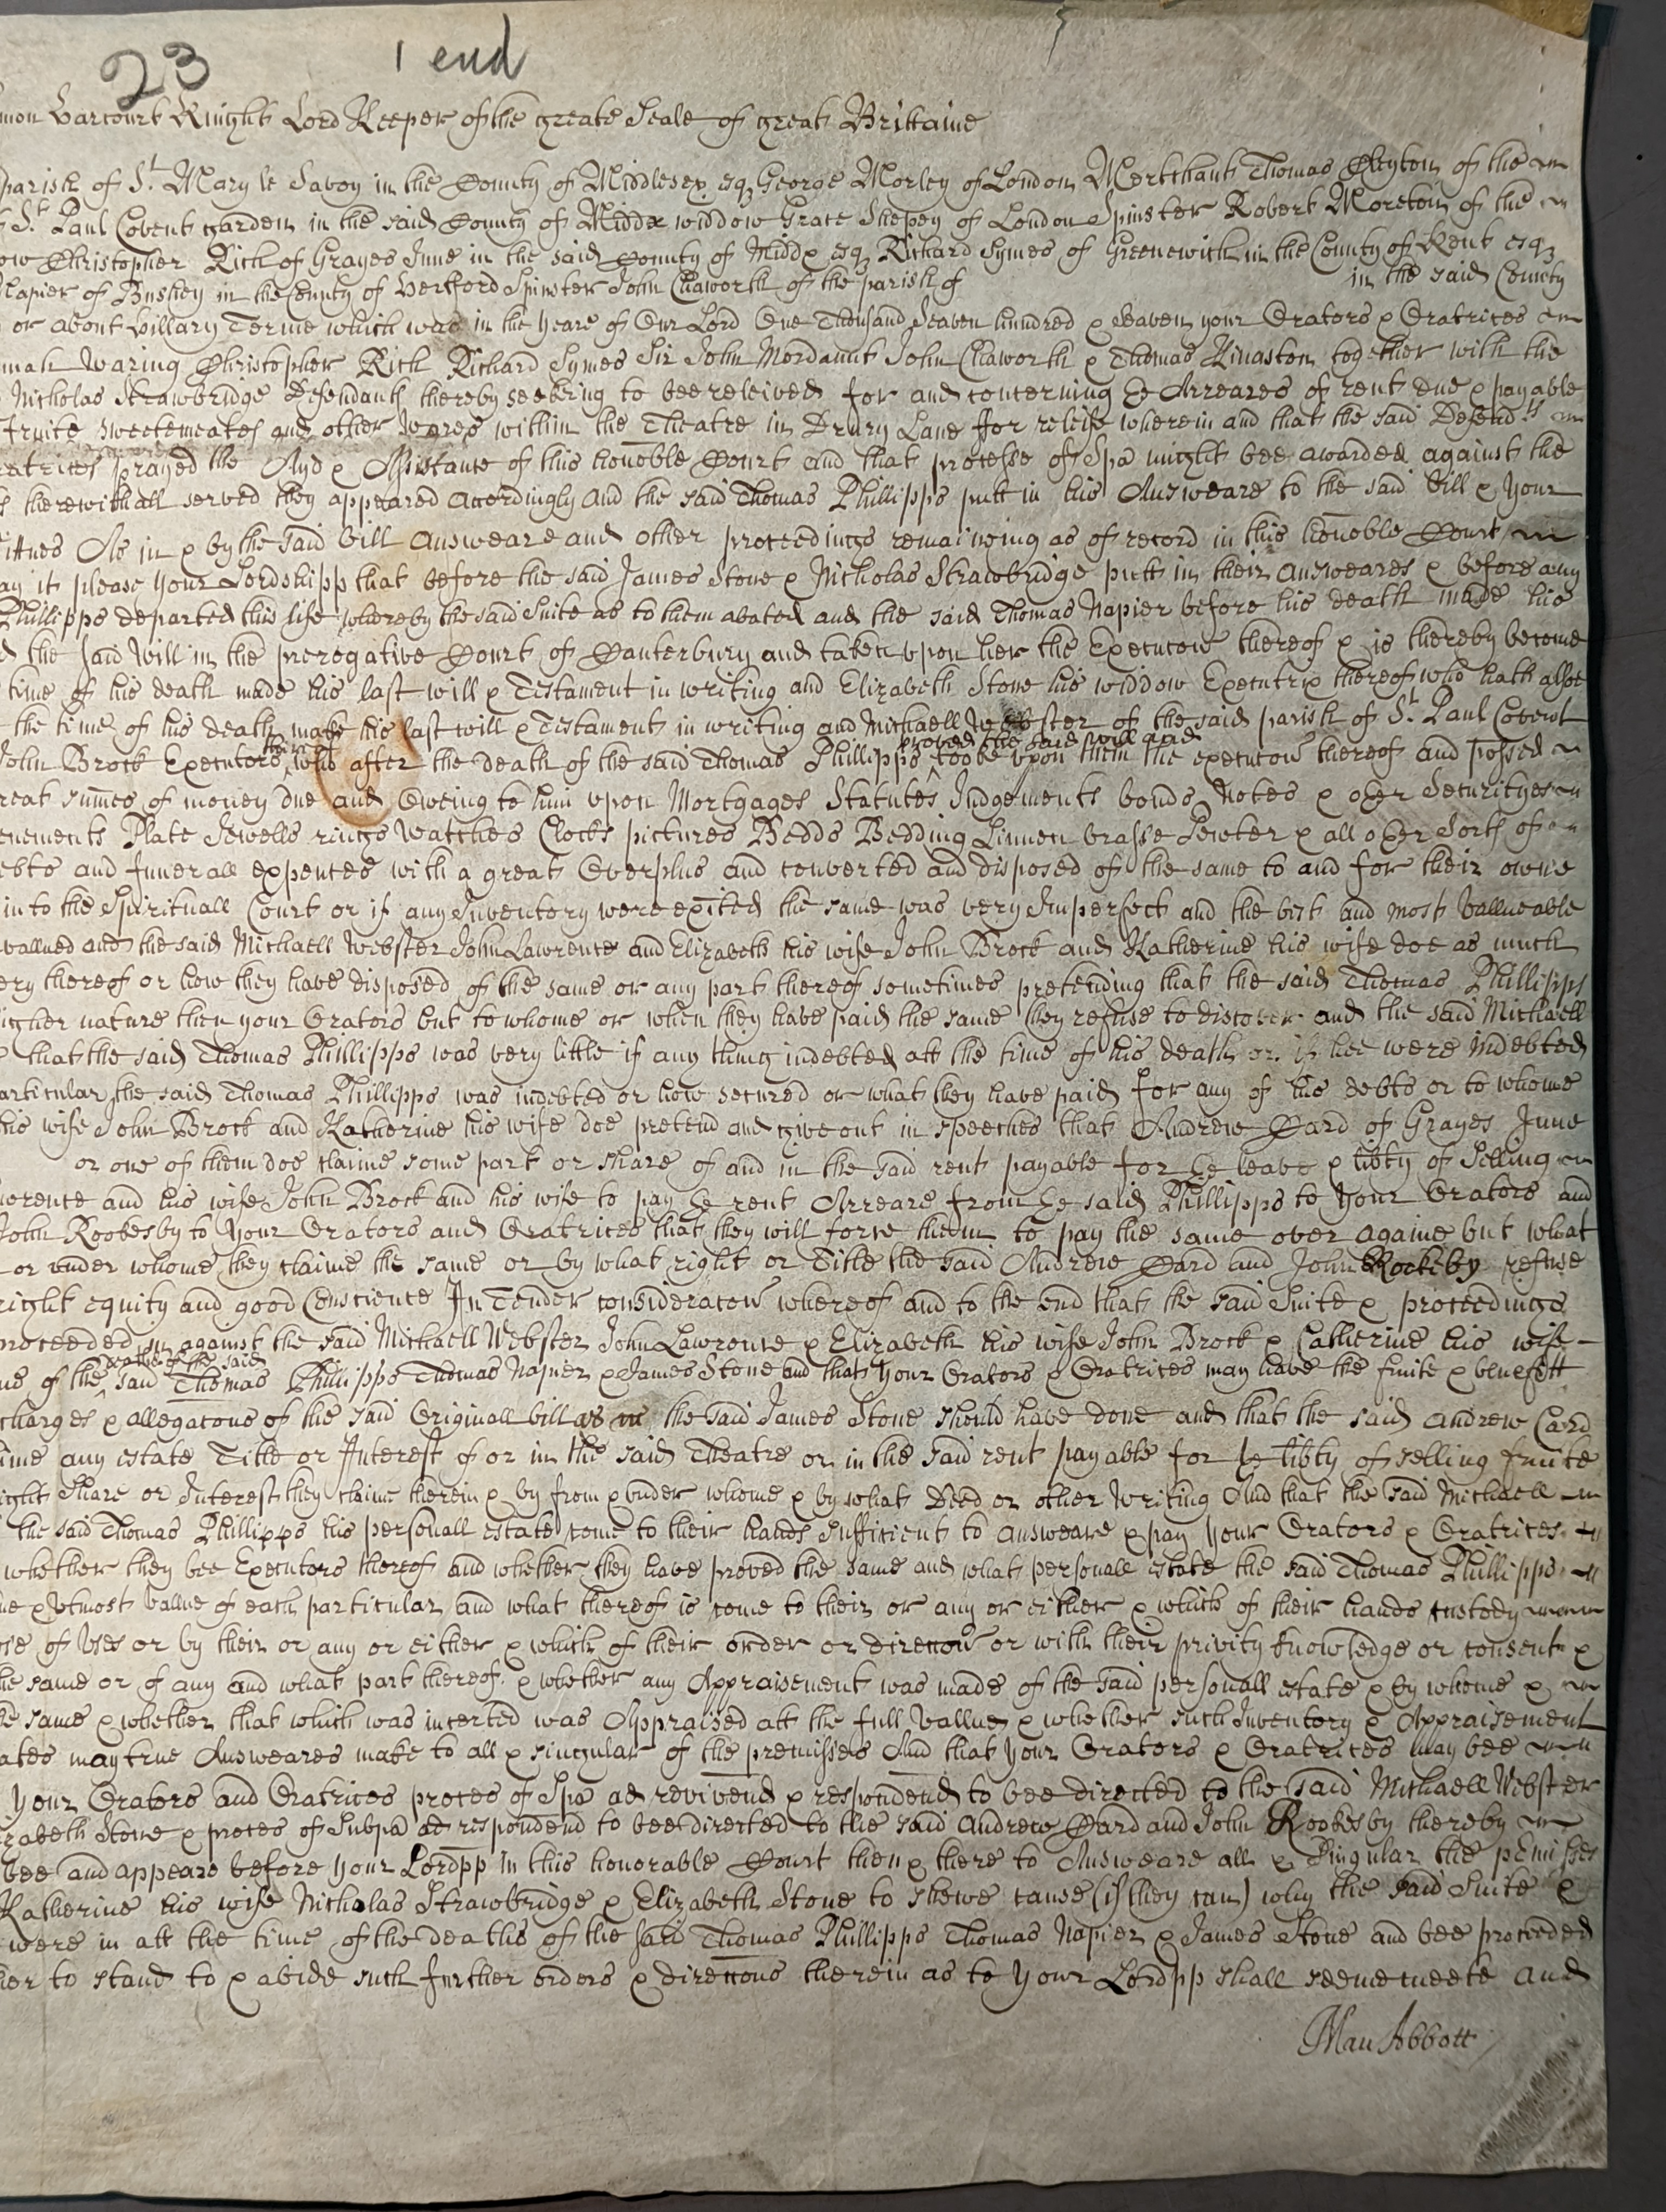 23 1 end
mon Harcourt Knight Lord Keeper of the greate Seale of great Brittaine
parish of St. Mary le Savoy in the County of Middlesex esq George Morley of London Merchant Thomas Cleyton of the
St. Paul Covent garden in the said County of Middx widdow Grace Shepey of London Spinster Robert Moreton of the
ow Christopher Rich of Grayes Inne in the said County of Middx esq Richard Symes of Greenewich in the County of Kent esq
Napier of Bushey in the County of Hertford Spinster John Chaworth of the parish of in the said County
or about Hillary Terme which was in the yeare of Our Lord One Thousand Seaven hundred & Seaven your Orators & Oratrices
mah Waring Christopher Rich Richard Symes Sir John Mordaunt John Chaworth & Thomas Kinaston together with the
Nicholas Strawbridge Defendants thereby seeking to bee releived for and concerning ye Arreares of rent due & payable
fruite sweetemeates and other Wares within the Theatre in Drury Lane for releife wherein and that the said Defendts
ratrices prayed the Ayd & Assistance of this honoble Court and that processe of Spa might bee awarded against the
s therewithall served they appeared accordingly and the said Thomas Phillipps putt in his Answeare to the said Bill & your
ittnes As in & by the said bill answeare and other proceedings remaineing as of record in this honoble Court
ay it please your Lordshipp that before the said James Stone & Nicholas Strawbridge putt in their answeares & before any
Phillipps departed this life whereby the said Suite as to them abated and the said Thomas Napier before his death made his
d the said Will in the prerogative Court of Canterbury and taken upon her the Executon thereof & is thereby become
time of his death made his last will & Testament in writing and Elizabeth Stone his widdow Executrix thereof who hath alsoe
the time of his death make his last will & Testament in writing and Michaell Webster of the said parish of St. Paul Covent
John Brock Executors who after the death of the said Thomas Phillipps proved the said will and tooke upon them the executon thereof and possed
reat sumes of money due and Oweing to him upon Mortgages Statutes Judgements bonds Notes & oyer Securityes
enements Plate Jewells rings Watches Clocks pictures Bedds Bedding Linnen brasse Pewter & all oyer Sorts of
ebts and funerall expences with a great Overplus and converted and disposed of the same to and for their owne
into the Spirituall Court or if any Inventory were exited the same was very Imperfect and the best and most valluable
vallued and the said Michaell Webster John Lawrence and Elizabeth his wife John Brock and Katherine his wife doe as much
ery thereof or how they have disposed of the same or any part thereof sometimes pretending that the said Thomas Phillipps
igher nature then your Orators but to whome or when they have paid the same they refuse to discover and the said Michaell
that the said Thomas Phillipps was very little if any thing indebted att the time of his death or if hee were Indebted
articular the said Thomas Phillipps was indebted or how secured or what they have paid for any of his debts or to whome
his wife John Brock and Katherine his wife doe pretend and give out in speeches that Andrew Card of Grayes Inne
or one of them doe claime some part or share of and in the said rent payable for ye leave & libty of Selling
wrence and his wife John Brock and his wife to pay ye rent Arreare from ye said Phillipps to your Orators and
John Rookesby to your Orators and Oratrices that they will force them to pay the same over againe but what
or under whome they claime the same or by what right or Title the said Andrew Card and John Rookeby refuse
right equity and good Conscience In Tender consideraton whereof and to the end that the said Suite & proceedings
proceeded in against the said Michaell Webster John Lawrence & Elizabeth his wife John Brock & Catherine his wife
me of the deaths of the said Thomas Phillipps Thomas Napier & James Stone and that your Orators & Oratrices may have the fruite & benefitt
charges & allegacons of the said Originall bill as the said James Stone should have done and that the said Andrew Card
ime any estate Title or Interest of or in the said Theatre or in the said rent payable for ye libty of selling fruite
ight Share or Interest they claime therein & by from & under whome & by what Deed or other Writing And that the said Michaell
the said Thomas Phillipps his personall estate come to their hands Sufficient to answeare & pay your Orators & Oratrices
whether they bee Executors thereof and whether they have proved the same and what personall estate the said Thomas Phillipps
ue & utmost vallue of each particular and what thereof is come to their or any or either & which of their hands custody
ose of Uses or by their or any or either & which of their order or direccon or with their privity knowledge or consent &
he same or of any and what part thereof & whether any Appraisement was made of the said personall estate & by whome &
he same & whether that which was incerted was Appraised att the full vallue & whether such Inventory & Appraisement
ates may true Answeares make to all & singular of the premisses And that your Orators & Oratrices may bee
your Orators and Oratrices proces of Spa ad revivend & respondend to bee directed to the said Michaell Webster
izabeth Stone & proces of Subpa ad respondend to bee directed to the said Andrew Card and John Rookesby thereby
bee and appeare before your Lordpp in this honorable Court then & there to Answeare all & Singular the pemisses
Katherine his wife Nicholas Strawbridge & Elizabeth Stone to shewe cause (if they can) why the said Suite &
were in att the time of the deaths of the said Thomas Phillipps Thomas Napier & James Stone and bee proceeded
her to stand to & abide such further orders & direccons therein as to your Lordpp shall seeme meete and
Man Abbott